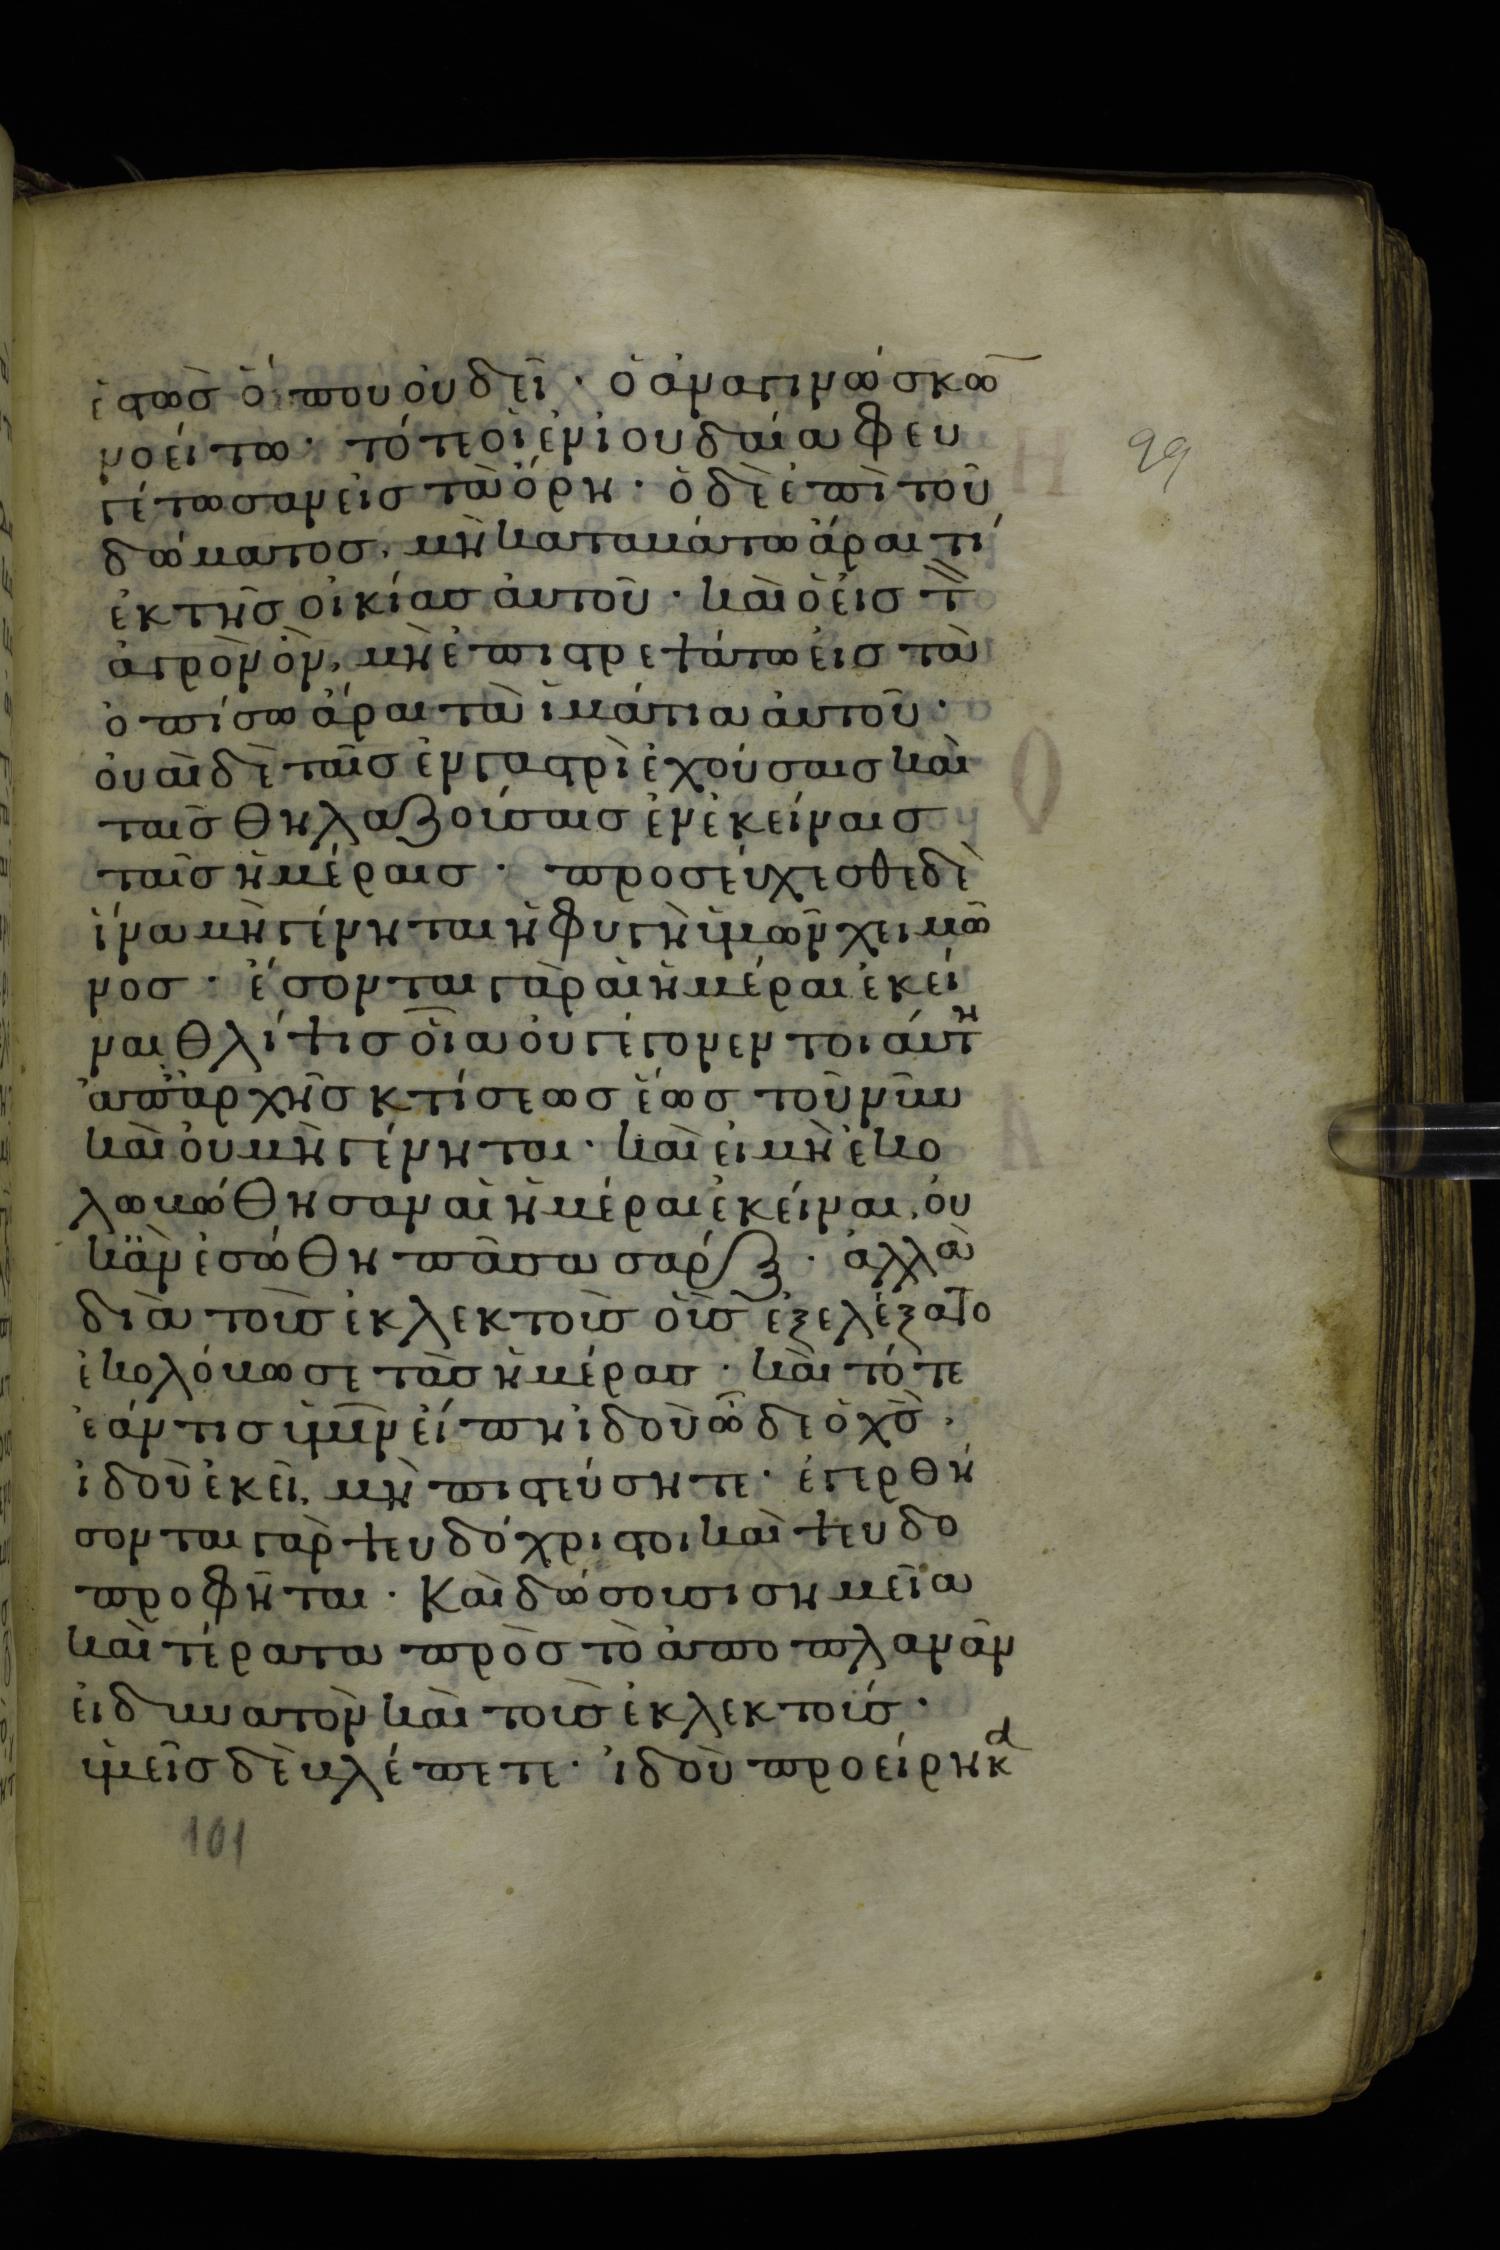 ἑστὼς ὅπου οὐ δεῖ · ὁ ἀναγινώσκω̅
νοείτω · τότε οἱ ἐν ἰουδαία φευ
γέτωσαν εἰς τὰ ὄρη · ὁ δὲ ἐπὶ τοῦ
δώματος, μὴ καταβάτω ἆραι τί
ἐκ τῆς οἰκίας ἀυτοῦ · καὶ ὁ εἰς τ̀
ἀγρὸν ὢν, μὴ ἐπιστρεψάτω εἰς τὰ
ὀπίσω ἆραι τὰ ἱμάτια ἀυτοῦ ·
οὐαὶ δὲ ταῖς ἐν γαστρὶ ἐχούσαις καὶ
ταῖς θηλαζούσαις ἐν ἐκείναις
ταῖς ἡμέραις · προσέυχεσθε δὲ
ἵνα μὴ γένηται ἡ φυγὴ ὑμῶν χειμῶ̅
νος · ἔσονται γὰρ αἱ ἡμέραι ἐκεί
ναι θλίψις οἵα οὐ γέγονεν τοιάυτη
ἀπαρχῆς κτίσεως ἕως τοῦ νῦν
καὶ οὐ μὴ γένηται · καὶ εἰ μὴ ἐκο
λωβώθησαν αἱ ἡμέραι ἐκείναι, οὐ
κἂν ἐσώθη πᾶσα σάρξ · ἀλλὰ
διὰ τοὺς ἐκλεκτοὺς οὓς ἐξελέξατο
ἐκολόβωσε τὰς ἡμέρας · καὶ τότε
ἐάν τις ὑμῖν εἴπη ἰδοὺ ὧδε ὁ χς̅ ·
ἰδοὺ ἐκεῖ, μὴ πιστεύσητε · ἐγερθή
σονται γὰρ ψευδόχριστοι καὶ ψευδο
προφῆται · Καὶ δώσουσι σημεῖα
καὶ τέρατα πρὸς τὸ ἀποπλανᾶν
εἰ δυνατὸν καὶ τοὺς ἐκλεκτούς ·
ὑμεῖς δὲ βλέπετε · ἰδοὺ προείρηκα
99
101